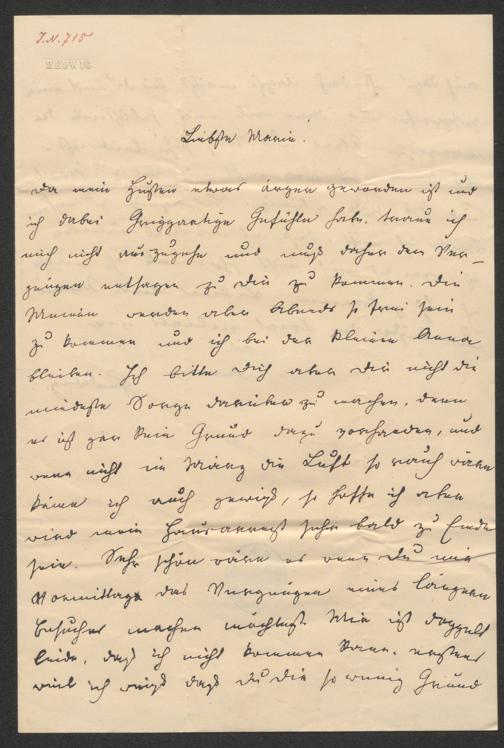 I.N. 715
HEDWIG
Liebste Marie!
Da mein Husten etwas ärger geworden ist und
ich dabei Grippeartige Gefühle habe, traue ich
mich nicht auszugehe und muß daher dem Ver-
gnügen entsagen zu Dir zu kommen. Die
Meinen werden aber Abends so frei sein
zu kommen und ich bei der kleinen Anna
bleiben. Ich bitte Dich aber Dir nicht die
mindeste Sorge darüber zu machen, denn
es ist gar kein Grund dazu vorhanden, und
wenn nicht im März die Luft so rauh wäre
käme ich auch gewiß, so hoffe ich aber
wird mein Hausarrest sehr bald zu Ende
sein. Sehr schön wäre es wenn Du mir
Vormittags das Vergnügen eines längern
Besuches machen möchtest. Mir ist doppelt
leid, daß ich nicht kommen kann, erstens
weil ich weiß daß Du Dir so wenig Grund